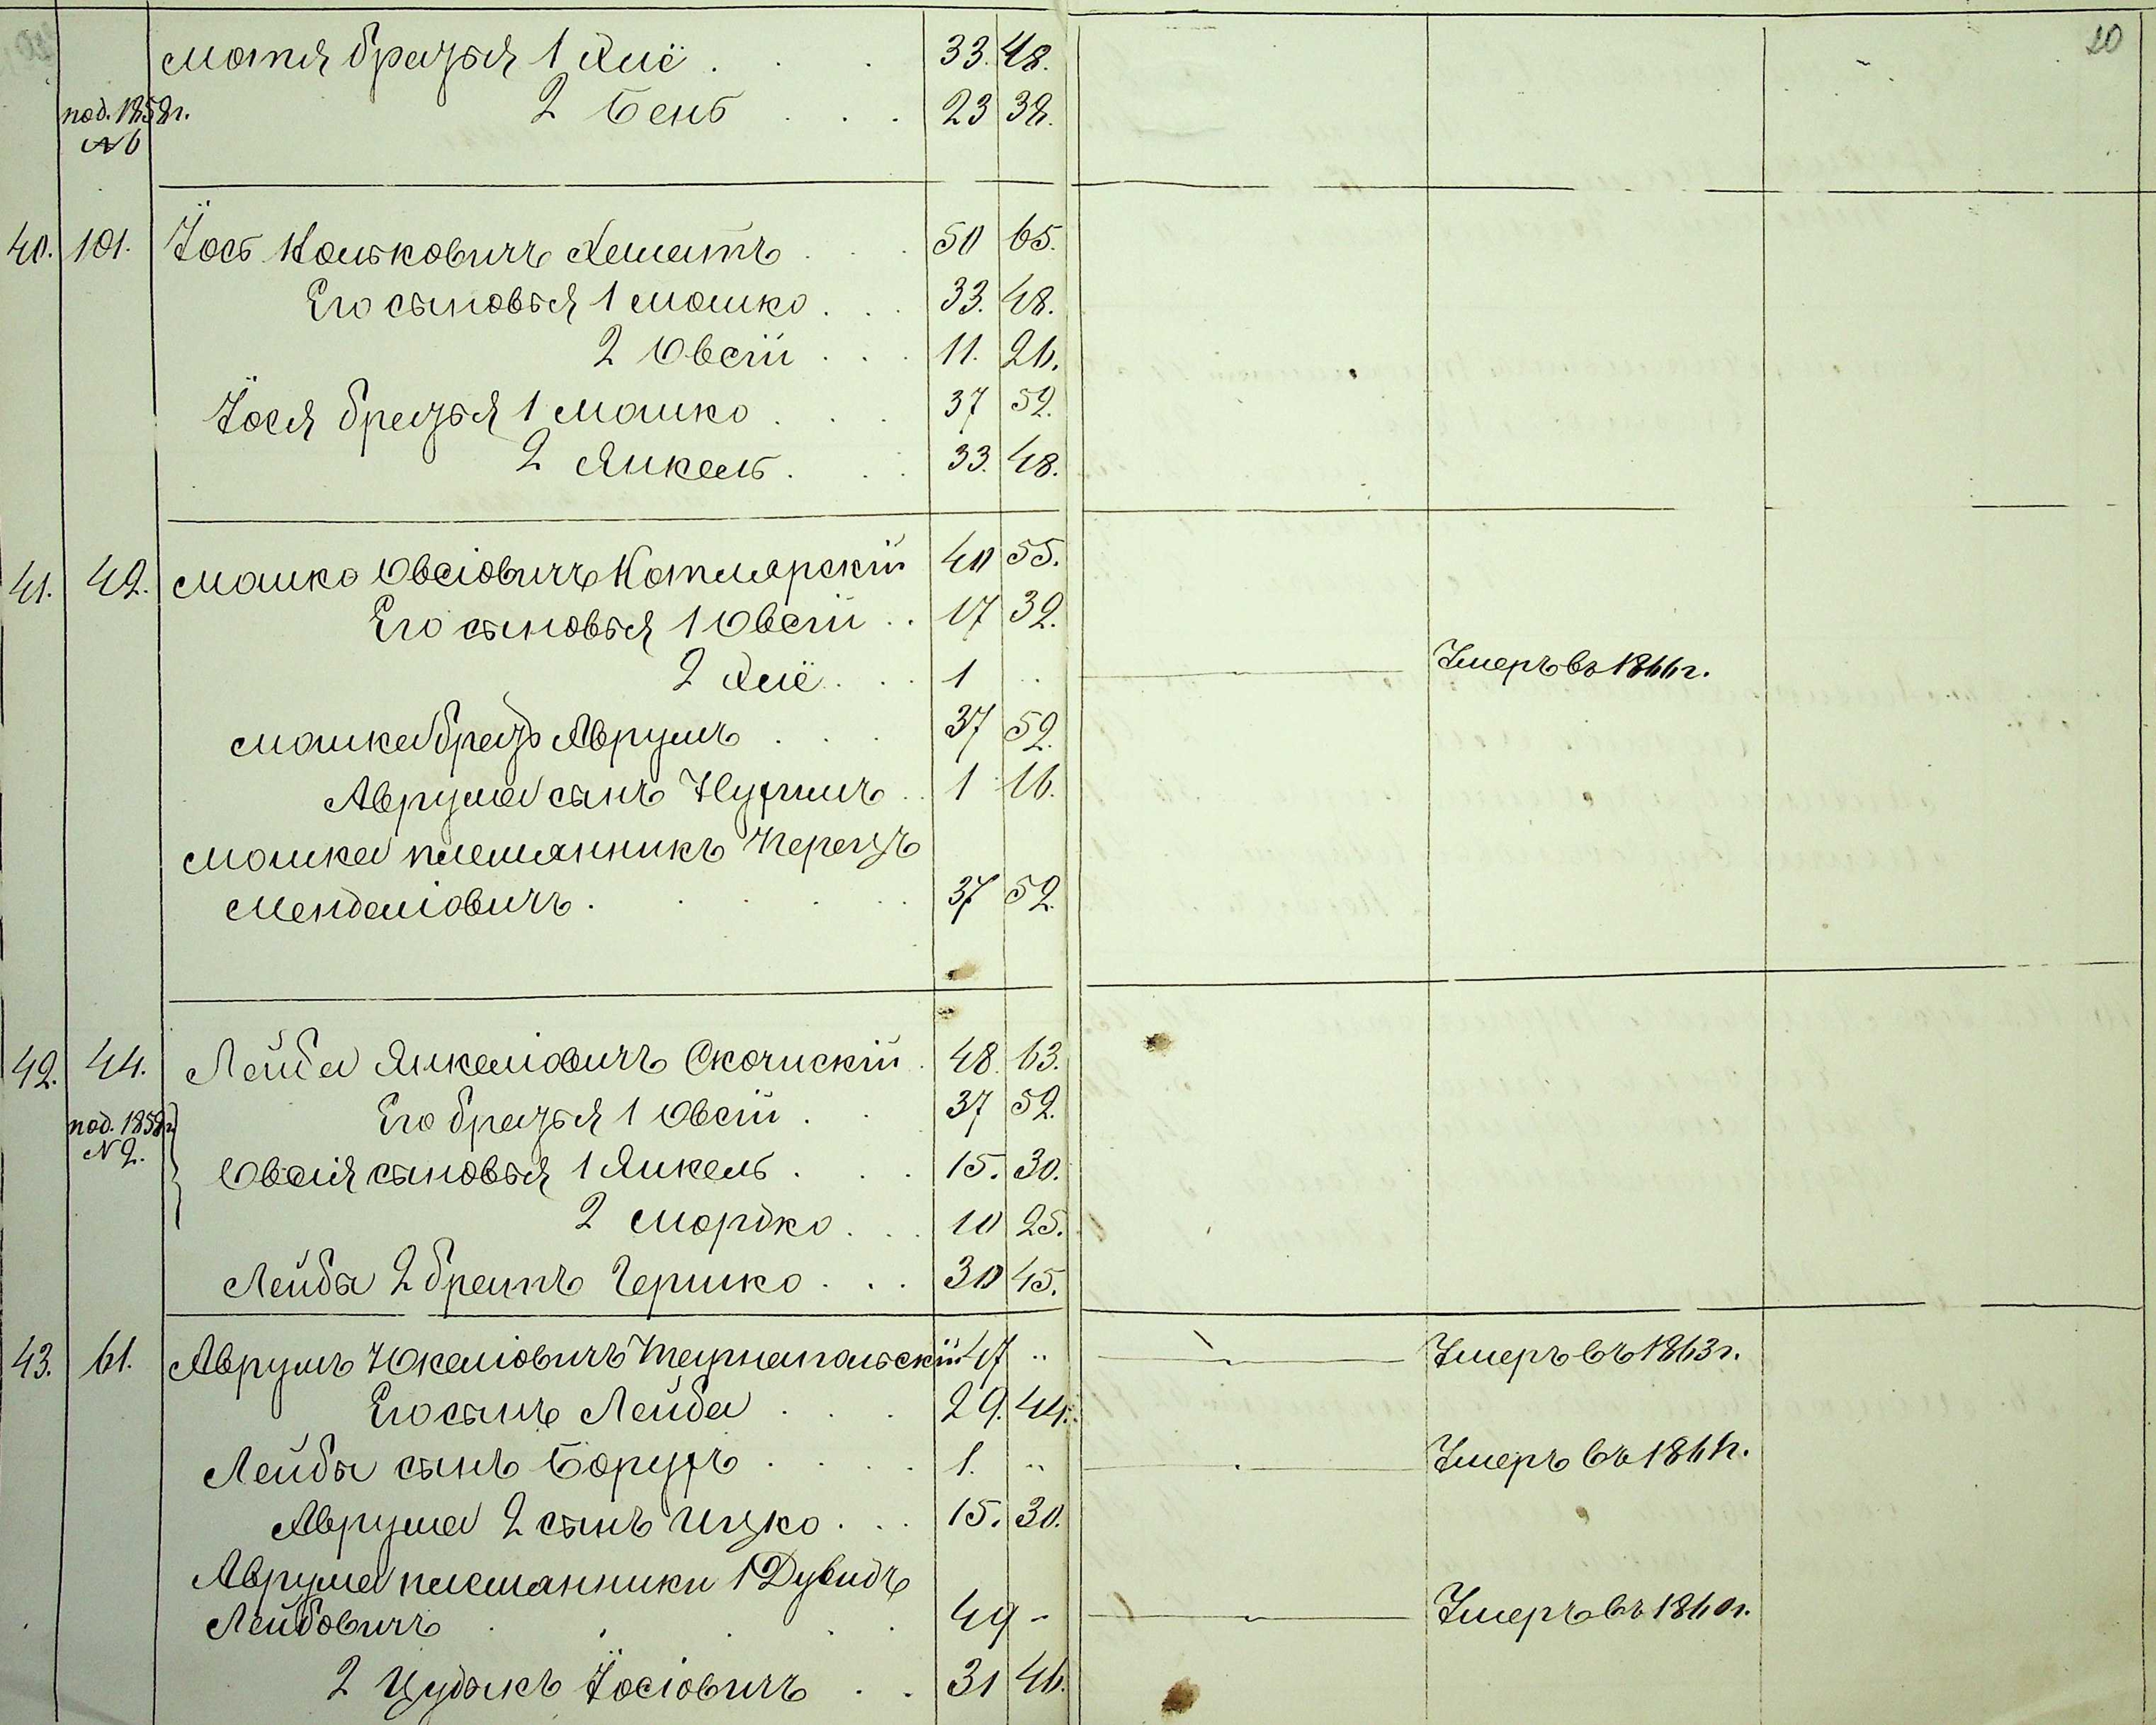 20
Мотя братья 1 Хиё . . . 33. 48.
под. 1858 г. 2 Бень . . . 23 38.
№ 6
40. 101. Іось Ковьковичъ Хематъ . . . 50 65.
Его сыновья 1 Мошко . . . 33. 48.
2 Овсій . . . 11. 26.
Іося братья 1 Мошко . . . 37 52.
2 Янкель . . . 33. 48.
41. 42. Мошко Овсіовичъ Котлярскій 40 55.
Его сыновья 1 Овсій . . 17 32.
2 Хиё . . . 1 .. Умеръ въ 1866 г.
Мошка братъ Аврумъ . . . 37 52.
Аврума сынъ Нухимъ . . 1 16.
Мошка племянникъ Перецъ
Менделіовичъ . . . . . 37 52.
42. 44. Лейба Янкеліовичъ Скочискій . 48. 63.
под. 1858 г. Его братья 1 Овсій . . 37 52.
№ 2. Овсія сыновья 1 Янкель . . . 15. 30.
2 Мордко . . . 10 25.
Лейбы 2 братъ Гершко . . . 30 45.
43. 61. Аврумъ Юкеліовичъ Тарнапольскій 47 .. Умеръ въ 1863 г.
Его сынъ Лейба . . . 29. 44.
Лейбы сынъ Борухъ . . . . 1. .. Умеръ въ 186 г.
Аврума 2 сынъ Ицко . . . 15. 30.
Аврума племянники 1 Дувидъ
Лейбовичъ . . . . . 49 - Умеръ въ 1860 г.
2 Цудыкъ Іосіовичъ . . 31 46.